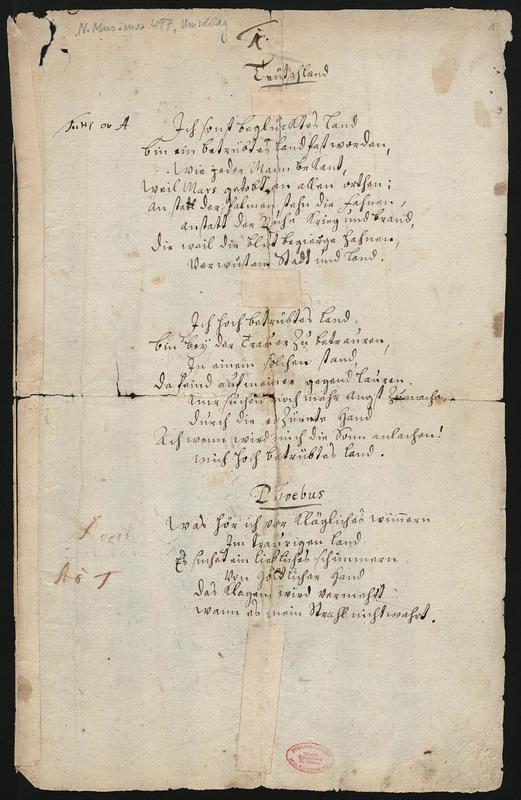 N. Mus. ms. 497, Umschlag
1
1.
Teütschland
Ich sonst beglücktes Land
bin ein betrübtes Land fast worden,
Wie jeder Mann bekant,
weil Mars getobt an allen orthen;
an statt der Palmen stehn die fahnen,
anstatt der Ruhe Krieg und brand,
die weil die blut begierge hahnen,
Verwüsten Stadt und Land.
Ich hoch betrübtes Land,
bin bey der Trauer zu betreuren,
In einem solchen stand,
Da feind auf meiner gegend lauren.
mir suchen noch mehr angst zu machen
durch die erzürnte Hand
Ach wenn wird mich die Sonn anlachen!
mich hoch betrübtes Land.
Phoebus
Was hör ich vor klägliches wimmern
Im traurigen Land
Es suchet ein liebliches schimmern
Von Göttlicher Hand
das Klagen wird vermehrt
wann es mein Strahl nicht wehrt.